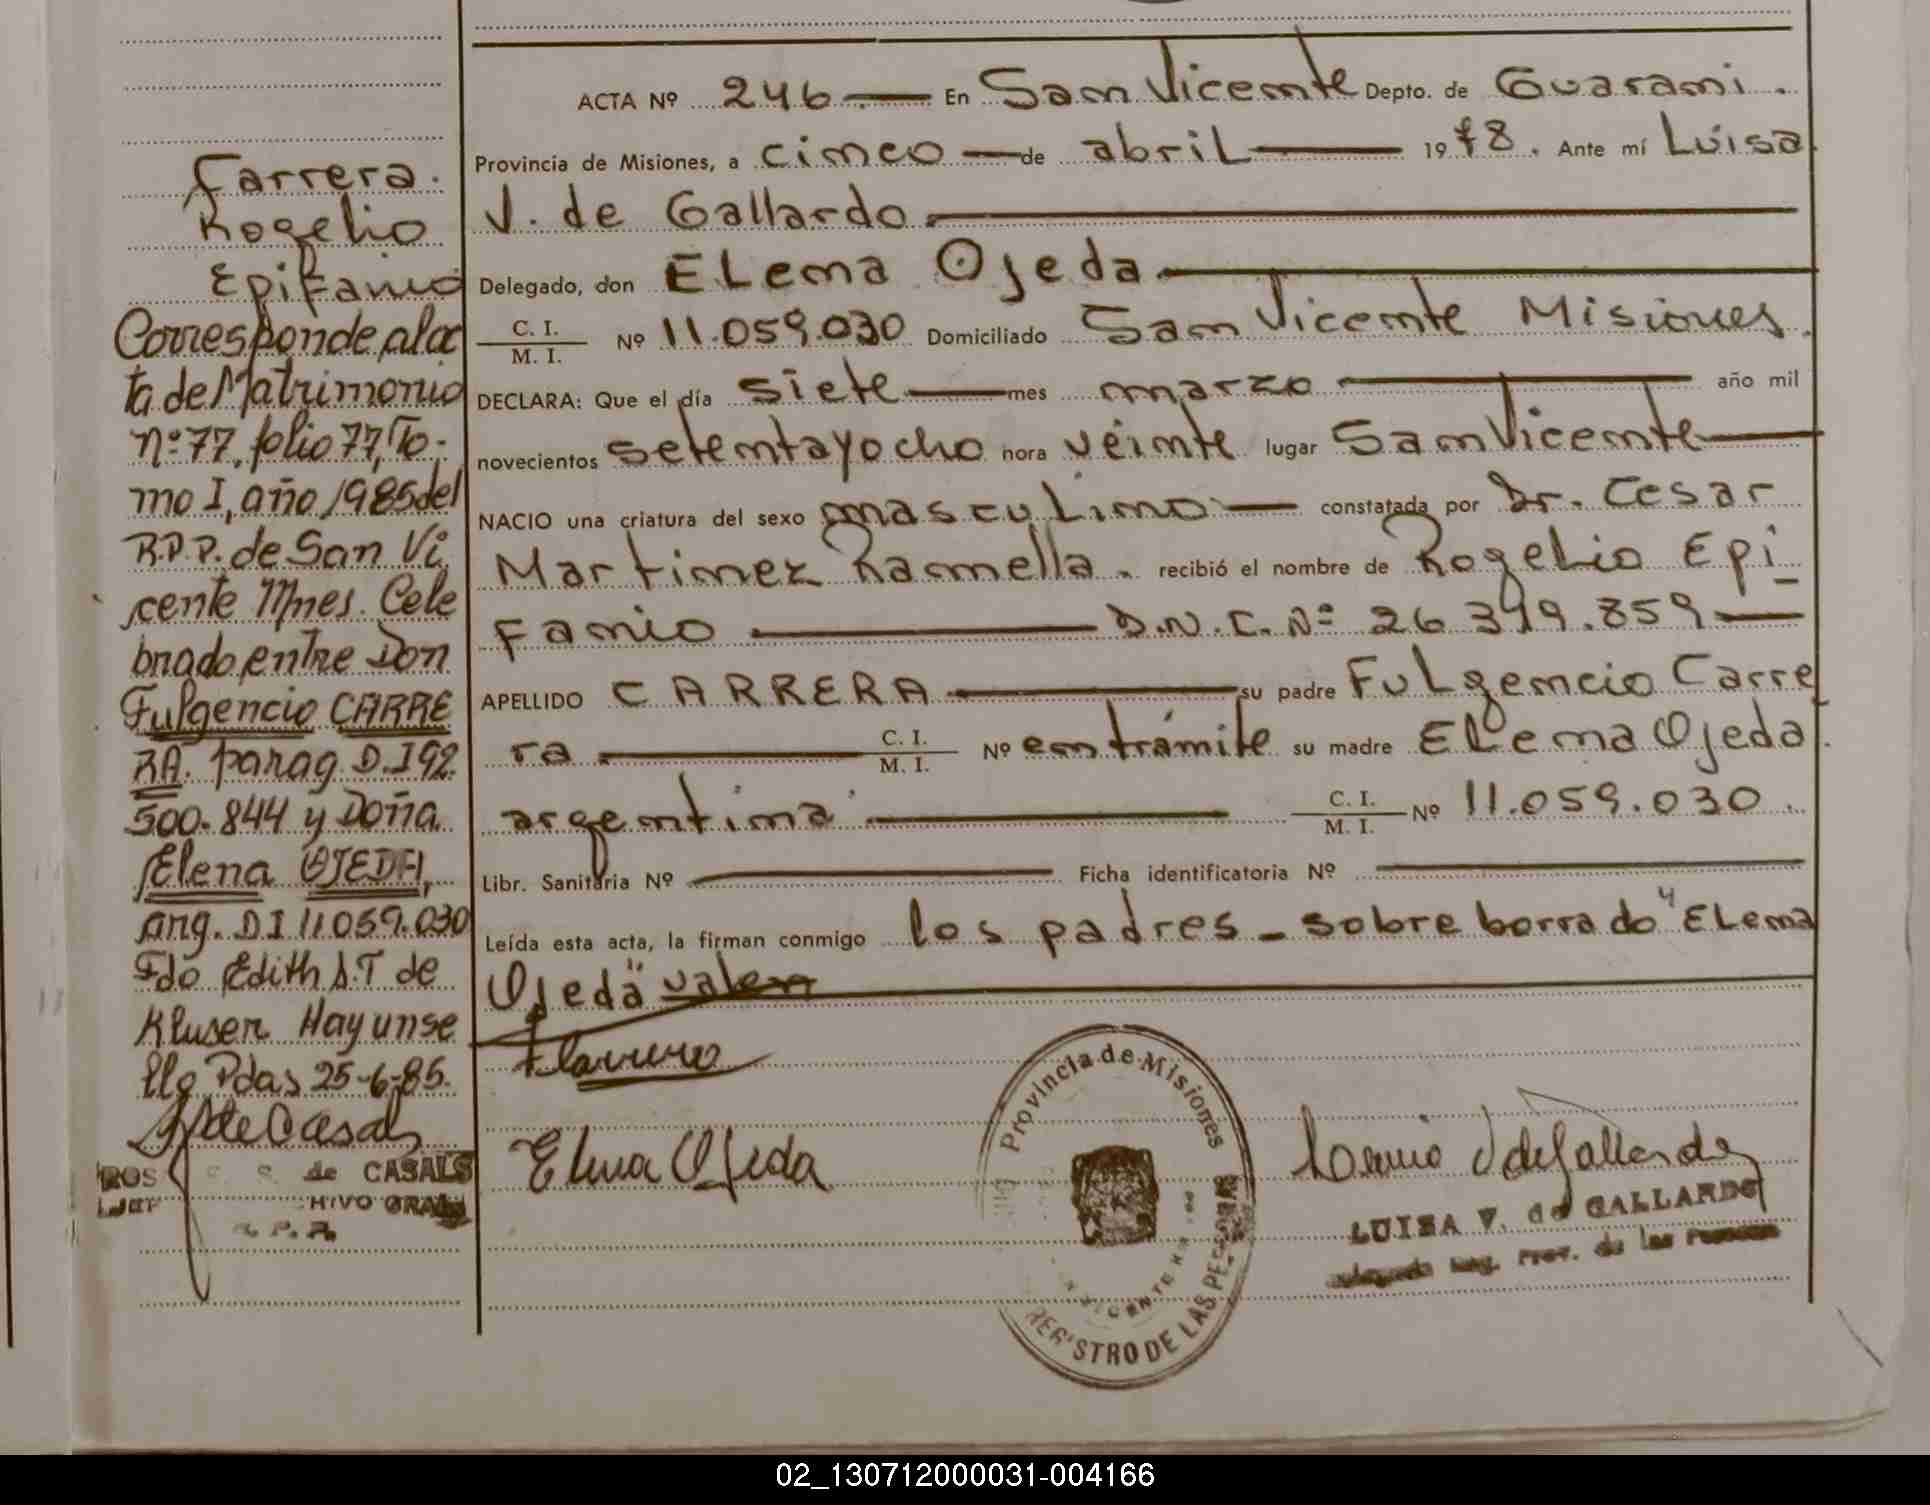 Carrera.
Rogelio
Epifanio
Corresponde al ac
ta de Matrimonio
nº 77, folio 77, To-
mo I, año 1985 del
R.P.P. de San Vi
cente Mnes. Cele
brado entre Don
Fulgencio CARRE
RA. parag. D.I 92.
500.844 y Doña
Elena OJEDA,
arg. D I 11 059.030
Fdo Edith S.T de
Kluser Hay un se
llo Pdas 25-6-85.
de Casals
de CASALS
ACTA Nº 246 En San Vicente Depto. de Guarani.
Provincia de Misiones, a cinco de abril 1978. Ante mí Luisa
V. de Gallardo
Delegado, don Elena Ojeda
C. I. / M. I. Nº 11.059.030 Domiciliado San Vicente Misiones.
DECLARA: Que el día siete mes marzo año mil
novecientos setentayocho hora veinte lugar San Vicente
NACIO una criatura del sexo masculino constatada por Dr. Cesar
Martinez Ramella. recibió el nombre de Rogelio Epi_
fanio D.N.I. Nº 26 399.859
APELLIDO CARRERA su padre Fulgencio Carre
ra C. I. / M. I. Nº en trámite su madre Elena Ojeda.
argentina C. I. / M. I. Nº 11.059.030.
Libr. Sanitaria Nº Ficha identificatoria Nº
Leída esta acta, la firman conmigo los padres - sobre borrado "Elena
Ojeda" valen
Elena Ojeda
Provincia de Misiones
REGISTRO DE LAS PERSONAS
Luisa V de Gallardo
LUISA V. de GALLARDO
Reg. Prov. de las Personas
02_130712000031-004166